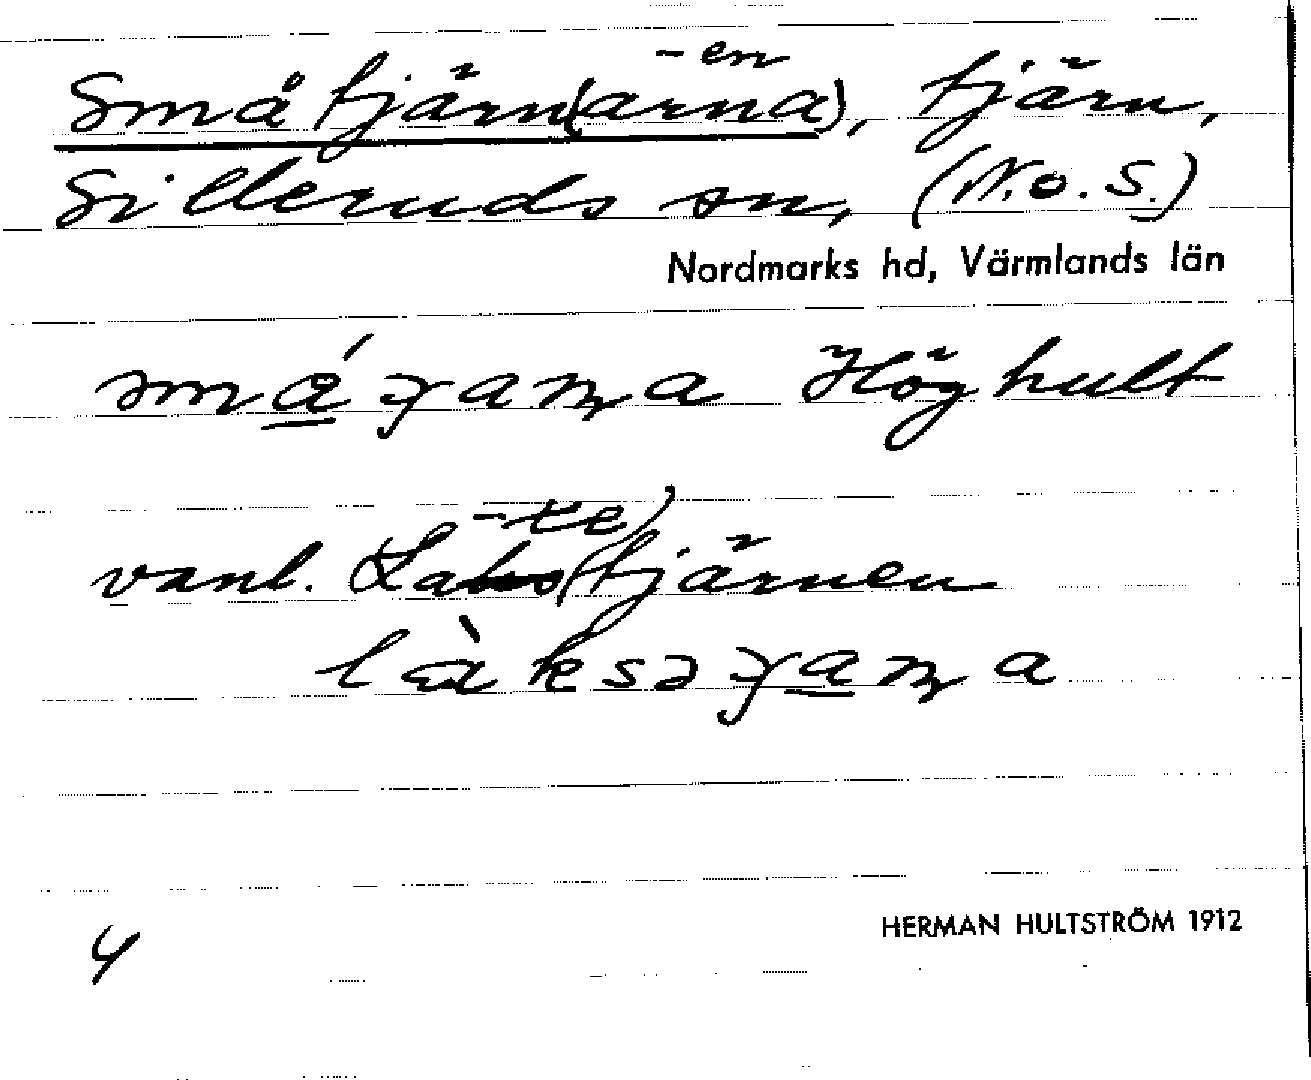 -en
Småtjärn(arna), tjärn,
Silleruds sn, (N.o.S.)
Nordmarks hd, Värmlands län
Höghult
-xe)
vanl. tjärnen
4
HERMAN HULTSTRÖM 1912